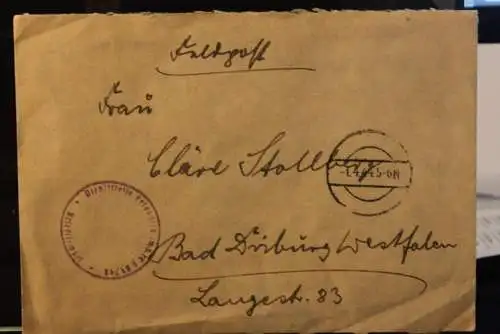 Feldpost
Frau
Cläre Stollberg
Bad Driburg Westfalen
Langestr. 83
Dienststelle